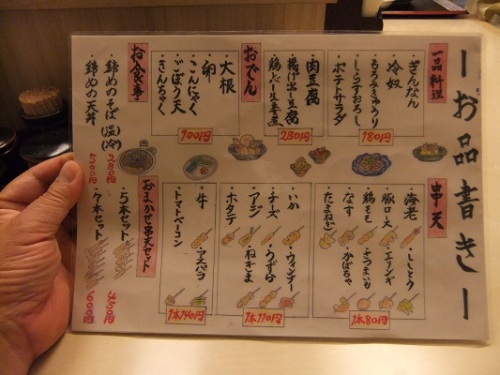 ーお品書きー
一品料理
・ぎんなん
・冷奴
・もろみきゅうり
・しらすおろし
・ポテトサラダ
180円
・肉豆腐
・揚げ出し豆腐
280円
おでん
・大根
・卵
・こんにゃく
・ごぼう天
・きんちゃく
100円
お食事
・締めのそば(温/冷)
280円
・締めの天丼
500円
串天
・海老
・豚ロース
・鶏もも
・なす
・たまねぎ
・ししとう
・エリンギ
・さつまいも
・かぼちゃ
1本80円
・いか
・チーズ
・アジ
・ホタテ
・ウィンナー
・うずら
・ねぎま
1本110円
・牛
・トマトベーコン
・アスパラ
1本140円
おまかせ串天セット
・5本セット
450円
・7本セット
600円